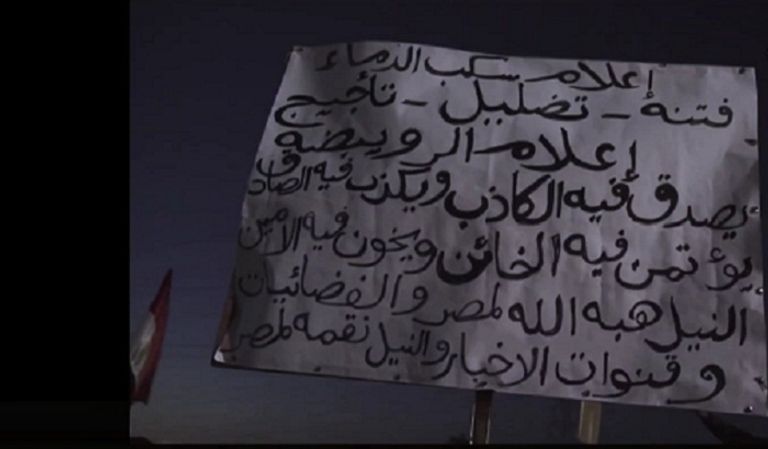 إعلام سكب الدماء
فتنة - تضليل - تأجيج
إعلام الرويبضه
يصدق فيه الكاذب ويكذب فيه الصادق
يؤتمن فيه الخائن ويخون فيه الأمين
النيل هبه الله لمصر والفضائيات
وقنوات الاخبار والنيل نقمه لمصر